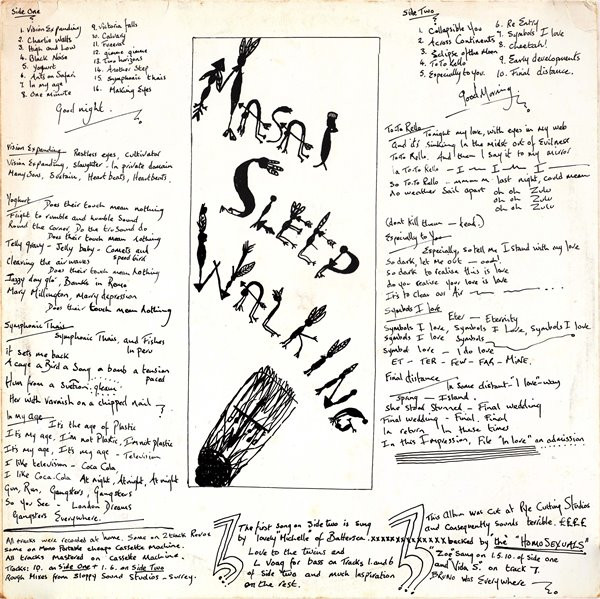 Side One
1. Vision Expanding
2. Charlie Walls
3. High and Low
4. Black Noise
5. Yogurt
6. Ants on Safari
7. In my age
8. One minute
9. Victoria falls
10. Calvary
11. Funeral
12. gimme gimme
13. Two horizons
14. Another Step
15. Symphonic thais
16. Making Eyes
Good night.
Side Two
1. Collapsible You
2. Across Continents
3. Eclipse of the Moon
4. To To Rello
5. Especially to you.
6. Re Entry
7. Symbols I love
8. Cheetah!
9. Early developments
10. Final distance.
Good Morning.
MASAI
SLEEP
WALKING
Vision Expanding Restless eyes, Cultivator
Vision Expanding, Slaughter - In private domain
Many Sons, Sustain, Heart beats, Heartbeats
Yoghurt Does their touch mean nothing
Flight to rumble and humble Sound
Round the Corner Do the tro Sound do
Does their touch mean nothing
Telly gravy - Jelly baby - Comets and
speed bird
Clearing the air waves
Does their touch mean nothing
Jazzy day glo, Bombs in Romeo
Mary Millington, Marry depression
Does their touch mean nothing
Symphonic Thais
Symphonic Thais, and Fishes
In peru
It sets me back
A cage a Bird a Song a bomb a tension
paced
Hum from a Suction. gleam.
Her with varnish on a chipped nail ?
In my age It's the age of Plastic
It's my age, I'm not Plastic, I'm not plastic
It's my age, It's my age - Television
I like television - Coca Cola,
I like Coca-Cola At night, At night At night
Gun, Run, Gangsters, Gangsters
So You See - London Dreams
Gangsters Everywhere.
To To Rello Tonight my love, with eyes in my web
And it's sinking In the midst out of Evilness
To To Rello. And them I say it to my mirror
is To To Rello - I - I - I
So To To Rello - mmm m last night, could mean
no weather Sail apart oh oh Zulu
oh oh Zulu
oh oh Zulu
(don't Kill them - dead.)
Especially to You
Especially, so tell me I stand with my love
So dark, let me out - oool!
So dark to realise this is love
do you realise your love is love
It's to clear our Air
Symbols I love
Eter - Eternity
Symbols I love, Symbols I love, Symbols I love
Symbols I love Symbols
Symbol love - I do love
ET - TER - FEW - FAR - MINE.
Final distance In Some distant "I love" way
Sprang - Island.
She stood Stunned - Final wedding
Final wedding - Final, Final
In return In these times
In this Impression, File "In love" on admission
All tracks were recorded at home. Some on 2 track Revox
some on Mono Portable cheapo Cassette Machine.
All tracks Mastered on Cassette Machine.
Tracks: 10. on Side One + 1. 6. on Side Two
Rough Mixes from Sloppy Sound Studios - Surrey.
The first song on side two is sung
by lovely Michelle of Battersea. xxxxxxxxxxxxxxx
Love to the twins and
L Voag for bass on Tracks 1. and 6
of Side two and much Inspiration
on the rest.
This Album was Cut at Rye Cutting Studios
and Consequently Sounds terrible. ££££
backed by the "HOMOSEXUALS"
"Zoo" Sang on 1.5.10. of side one
and Vida S. on track 7.
BRUNO was Everywhere